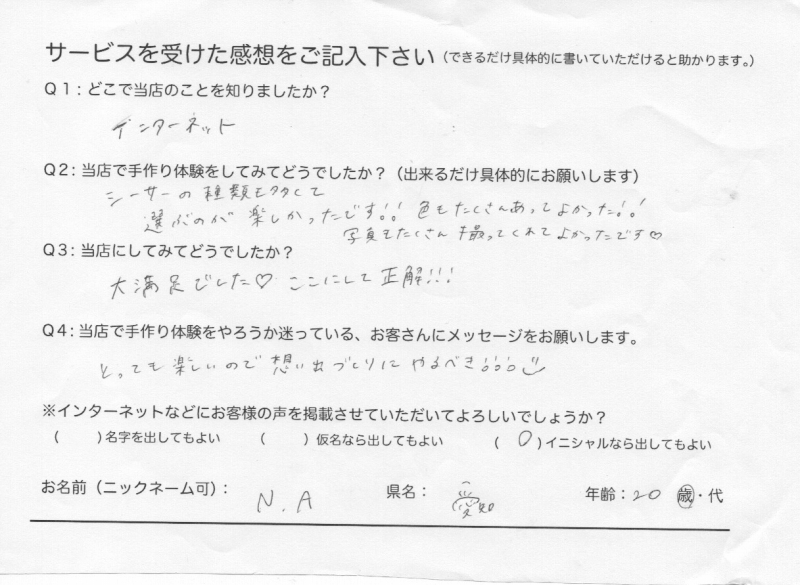 サービスを受けた感想をご記入下さい(できるだけ具体的に書いていただけると助かります。)
Q1:どこで当店のことを知りましたか？
インターネット
Q2:当店で手作り体験をしてみてどうでしたか？(出来るだけ具体的にお願いします)
シーサーの種類も多くて
選ぶのが楽しかったです!! 色もたくさんあってよかった!!
写真もたくさん撮ってくれてよかったです♡
Q3:当店にしてみてどうでしたか？
大満足でした♡ ここにして正解!!!
Q4:当店で手作り体験をやろうか迷っている、お客さんにメッセージをお願いします。
とっても楽しいので想い出づくりにやるべき!!!
※インターネットなどにお客様の声を掲載させていただいてよろしいでしょうか？
(　)名字を出してもよい (　)仮名なら出してもよい (○)イニシャルなら出してもよい
お名前(ニックネーム可): N.A 県名: 愛知 年齢:20 歳・代